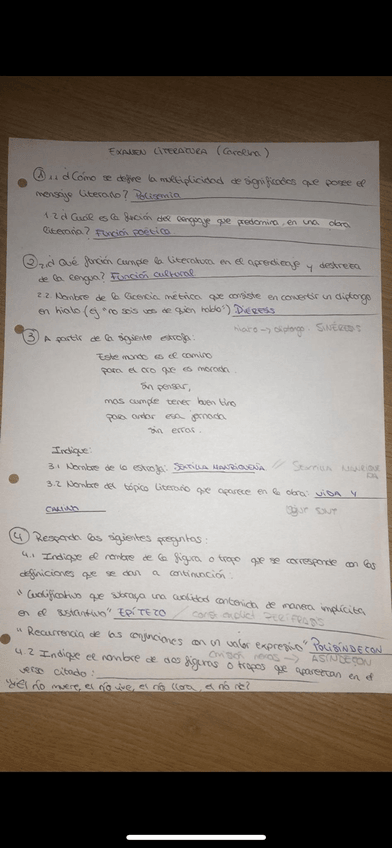 EXAMEN LITERATURA (Carolina)
① 1.1 ¿Cómo se define la multiplicidad de significados que posee el
mensaje literario? Polisemia
1.2 ¿Cuál es la función del lenguaje que predomina en una obra
literaria? Función poética
② 2.1 ¿Qué función cumple la literatura en el aprendizaje y destreza
de la lengua? Función cultural
2.2 Nombre de la licencia métrica que consiste en convertir un diptongo
en hiato (ej "no sois vos de quien hablo") DIÉRESIS
hiato → diptongo: SINÉRESIS
③ A partir de la siguiente estrofa:
Este mundo es el camino
para el otro que es morada
sin pesar,
mas cumple tener buen tino
para andar esa jornada
sin errar.
Indique:
3.1 Nombre de la estrofa: SEXTILLA MANRIQUEÑA // SEXTILLA MANRIQUE
ÑA
3.2 Nombre del tópico literario que aparece en la obra: VIDA Y
CAMINO
④ Responda las siguientes preguntas:
4.1 Indique el nombre de la figura o tropo que se corresponde con las
definiciones que se dan a continuación.
"Calificativo que subraya una cualidad contenida de manera implícita
en el sustantivo" EPÍTETO
"Recurrencia de las conjunciones con un valor expresivo" POLISÍNDETON
→ ASÍNDETON
4.2 Indique el nombre de dos figuras o tropos que aparezcan en el
verso citado:
"¿El no muere, el no vive, el no llora, el no ríe?